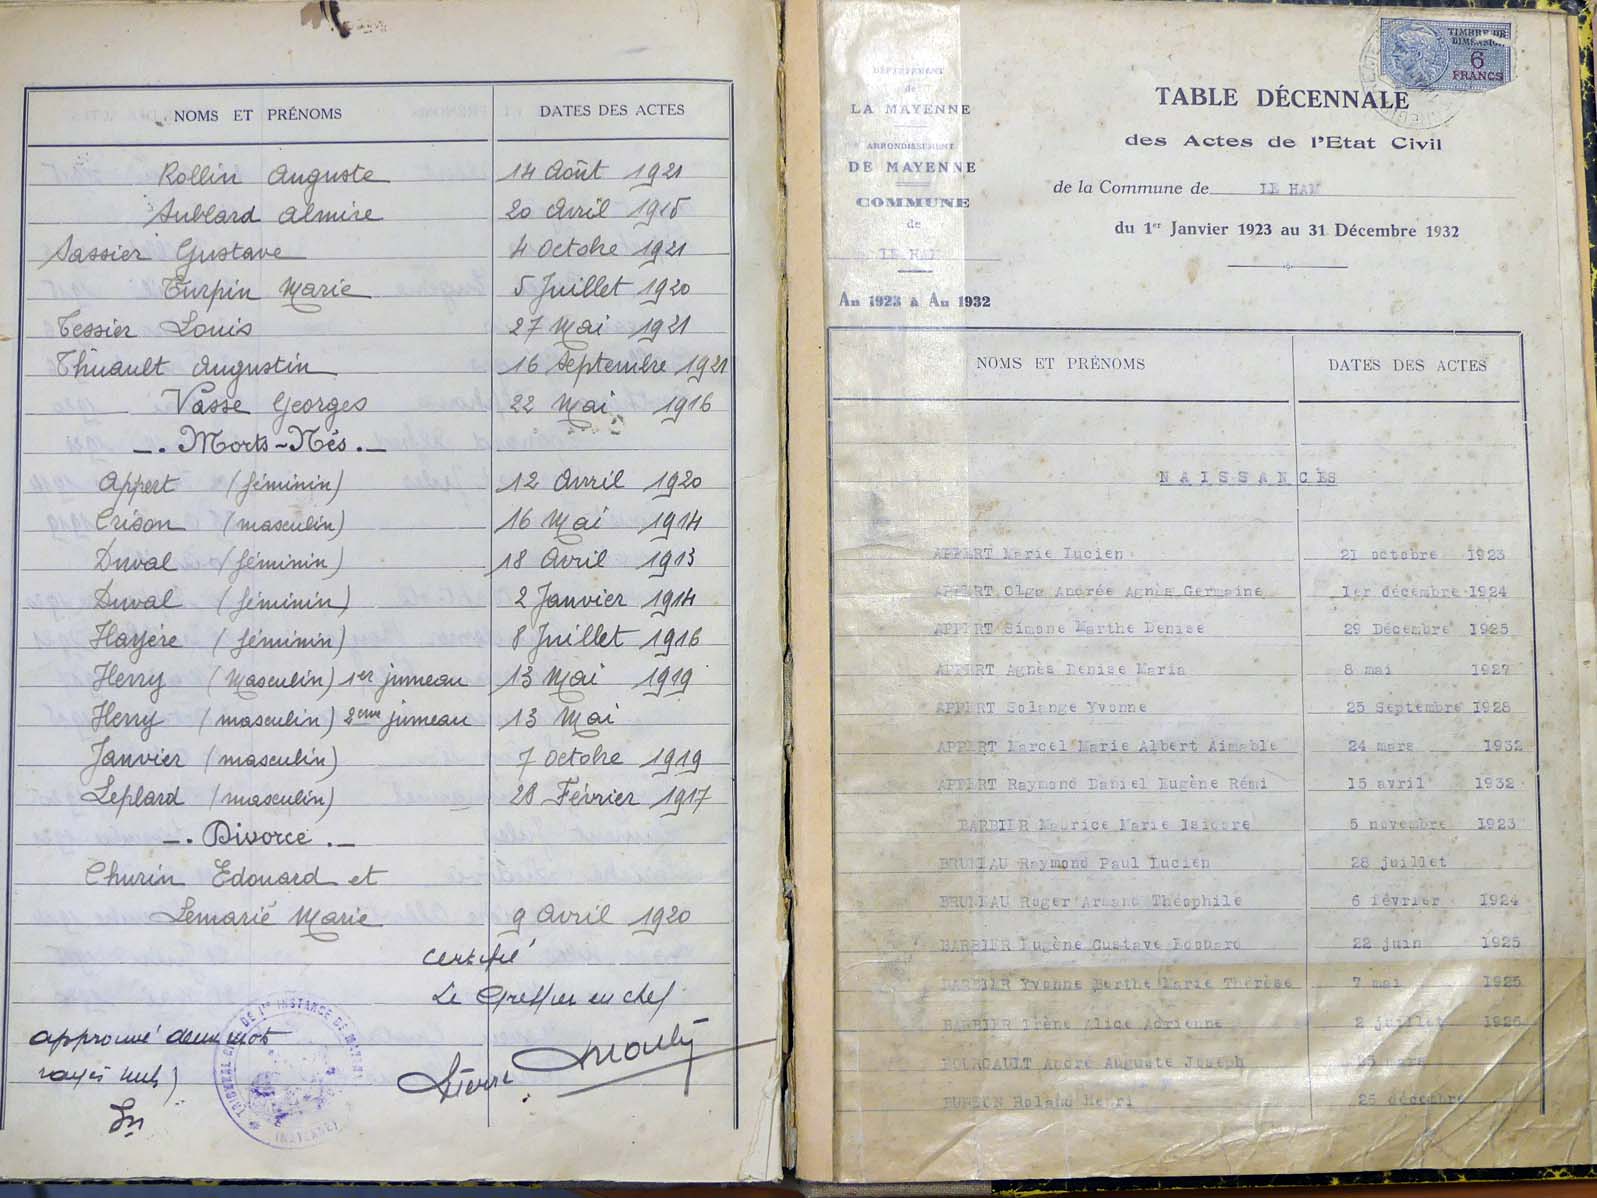 NOMS ET PRÉNOMS DATES DES ACTES
Rollin Auguste 14 Août 1921
Sublard Almire 20 Avril 1915
Sassier Gustave 4 Octobre 1921
Turpin Marie 5 Juillet 1920
Tessier Louis 27 Mai 1921
Thuault Augustin 16 Septembre 1921
Vasse Georges 22 Mai 1916
Morts-Nés
Appert (féminin) 12 Avril 1920
Crison (masculin) 16 Mai 1914
Duval (féminin) 18 Avril 1913
Duval (féminin) 2 Janvier 1914
Hayère (féminin) 8 Juillet 1916
Herry (Masculin) 1er jumeau 13 Mai 1919
Herry (masculin) 2eme jumeau 13 Mai
Janvier (masculin) 7 Octobre 1919
Leplard (masculin) 28 Février 1917
Divorce
Churin Edouard et
Lemarié Marie 9 Avril 1920
certifié
Le Greffier en chef
approuvé deux mots
rayés nuls
TRIBUNAL DE 1re INSTANCE DE MAYENNE
DÉPARTEMENT
de
LA MAYENNE
ARRONDISSEMENT
DE MAYENNE
COMMUNE
de
LE HAM
An 1923 à An 1932
TIMBRE DE
DIMENSION
6
FRANCS
TABLE DÉCENNALE
des Actes de l'Etat Civil
de la Commune de LE HAM
du 1er Janvier 1923 au 31 Décembre 1932
NOMS ET PRÉNOMS DATES DES ACTES
NAISSANCES
APPERT Marie Lucien 21 octobre 1923
APPERT Olga Andrée Agnès Germaine 1er décembre 1924
APPERT Simone Marthe Denise 29 Décembre 1925
APPERT Agnès Denise Maria 8 mai 1927
APPERT Solange Yvonne 25 Septembre 1928
APPERT Marcel Marie Albert Aimable 24 mars 1932
APPERT Raymond Daniel Eugène Rémi 15 avril 1932
BARBIER Maurice Marie Isidore 5 novembre 1923
BRUNEAU Raymond Paul Lucien 28 juillet
BRUNEAU Roger Armand Théophile 6 février 1924
BARBIER Eugène Gustave Edouard 22 juin 1925
BARBIER Yvonne Berthe Marie Thérèse 7 mai 1925
BARBIER Irène Alice Adrienne 2 juillet 1926
BOURGAULT André Auguste Joseph 25 mars
Roland Henri 25 décembre